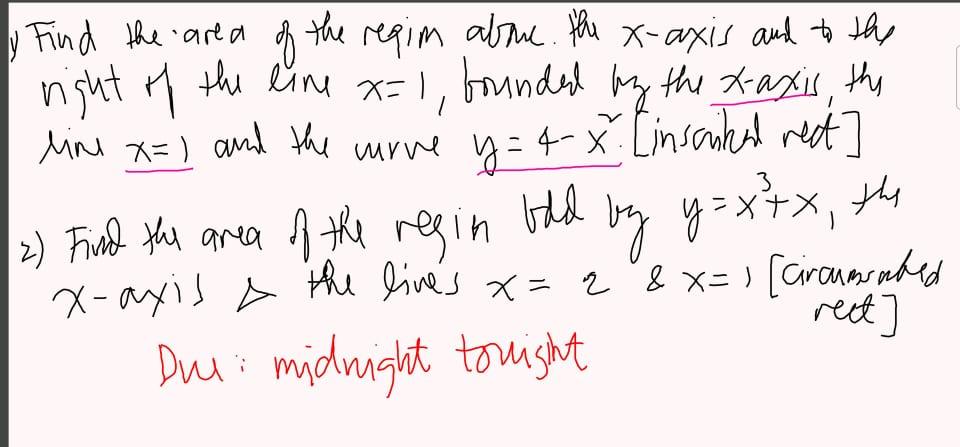 1) Find the area of the region above the x-axis and to the
right of the line x=1, bounded by the x-axis, the
line x=1 and the curve y = 4-x². [inscribed rect]
2) Find the area of the region bdd by y=x³+x, the
x-axis & the lines x = 2 & x=1 [circumscribed
rect]
Due: midnight tonight